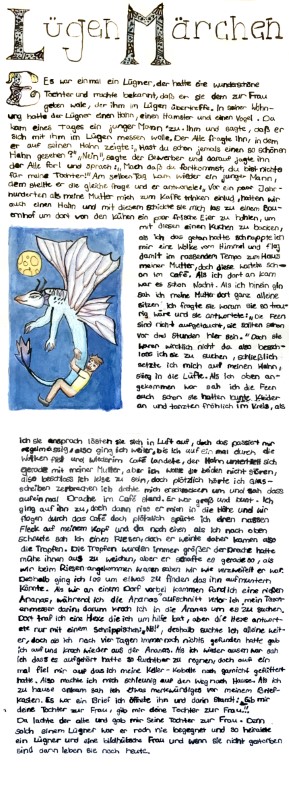 Lügen Märchen
Es war einmal ein Lügner, der hatte eine wunderschöne
Tochter und machte bekannt, daß er sie dem zur Frau
geben wolle, der ihm im Lügen übertreffe. In seiner Wohn-
ung hatte der Lügner einen Hahn, einen Hamster und einen Vogel. Da
kam eines Tages ein junger Mann zu ihm und sagte, daß er
sich mit ihm im Lügen messen wolle. Der Alte fragte ihn, in dem
er auf seinen Hahn zeigte: „Hast du schon jemals einen so schönen
Hahn gesehen?" „Nein", sagte der Bewerber und darauf jagte ihn
der Alte fort und sprach: „Mach daß du fortkommst, du bist nichts
für meine Tochter!" Am selben Tag kam wieder ein junger Mann,
dem stellte er die gleiche Frage und er antwortete: „Vor ein paar Jahr-
hunderten als meine Mutter mich zum Kaffe trinken einlud, hatten wir
auch einen Hahn und mit diesem schickte sie mich los zu einem Bau-
ernhof um dort von den Kühen ein paar frische Eier zu holen, um
mit diesen einen Kuchen zu backen,
als ich das getan hatte schnappte ich
mir eine Wolke vom Himmel und flog
damit im rasenden Tempo zum Haus
meiner Mutter, doch diese wartete schon
im Café. Als ich dort an kam
war es schon Nacht. Als ich hinein ging
sah ich meine Mutter dort ganz alleine
sitzen. Ich fragte sie warum sie so trau-
rig wäre und sie antwortete: „Die Feen
sind nicht aufgetaucht, sie sollten schon
vor drei Stunden hier sein." Doch sie
waren wirklich nicht da also besch-
loss ich sie zu suchen, schließlich
setzte ich mich auf meinen Hahn,
stieg in die Lüfte. Als ich oben an-
gekommen war sah ich die Feen
auch schon sie hatten bunte Kleider
an und tanzten fröhlich im Kreis, als
ich sie ansprach lösten sie sich in Luft auf, doch das passiert nur
regelmässig also ging ich weiter, bis ich auf ein mal durch die
Wolken fiel und wieder im Café landete, der Hahn unterhielt sich
gerade mit meiner Mutter, aber ich wollte die beiden nicht stören,
also beschloss ich leise zu sein, doch plötzlich hörte ich glas-
scheiben zerbrechen ich drehte mich erschrocken um und sah dass
auf einmal Drache im Café stand. Er war groß und bunt. Ich
ging auf ihn zu, doch dann riss er mich in die Höhe und wir
flogen durch das Café doch plötzlich spürte ich einen nassen
Fleck auf meinem Kopf und da noch einen als ich nach oben
schaute sah ich einen Riesen, doch er weinte daher kamen also
die Tropfen. Die Tropfen wurden immer größer der Drache hatte
mühe ihnen aus zu weichen, aber er schaffte es gerade so, als
wir beim Riesen angekommen waren sahen wir wie verzweifelt er war.
Deshalb ging ich los um etwas zu finden das ihn aufmuntern
könnte. Als wir an einem Dorf vorbei kammen fand ich eine riesen
Ananas, während ich die Ananas aufschnitt verlor ich mein Team-
anmesser darin, darum kroch ich in die Ananas um es zu suchen.
Dort traf ich eine Hexe die ich um hilfe bat, aber die Hexe antwort-
ete nur mit einem schnippischen „Nö!", deshalb suchte ich alleine weit-
er, doch als ich nach vier Tagen immer noch nichts gefunden hatte gab
ich auf und kroch wieder aus der Ananas. Als ich wieder aussen war sah
ich dass es aufgehört hatte so furchtbar zu regnen, doch auf ein
mal fiel mir auf das ich meine Keller-Kobolde noch garnicht gefüttert
hatte. Also machte ich mich schleunig auf den Weg nach Hause. Als ich
zu hause ankam sah ich etwas merkwürdiges vor meinem Brief-
kasten. Es war ein Brief ich öffnete ihn und darin stand: „Gib mir
deine Tochter zur Frau, gib mir deine Tochter zur Frau!"
Da lachte der alte und gab mir seine Tochter zur Frau. Denn
solch einem Lügner war er noch nie begegnet und so heiratete
ein Lügner und eine bildhübsche Frau und wenn sie nicht gestorben
sind dann leben sie noch heute.